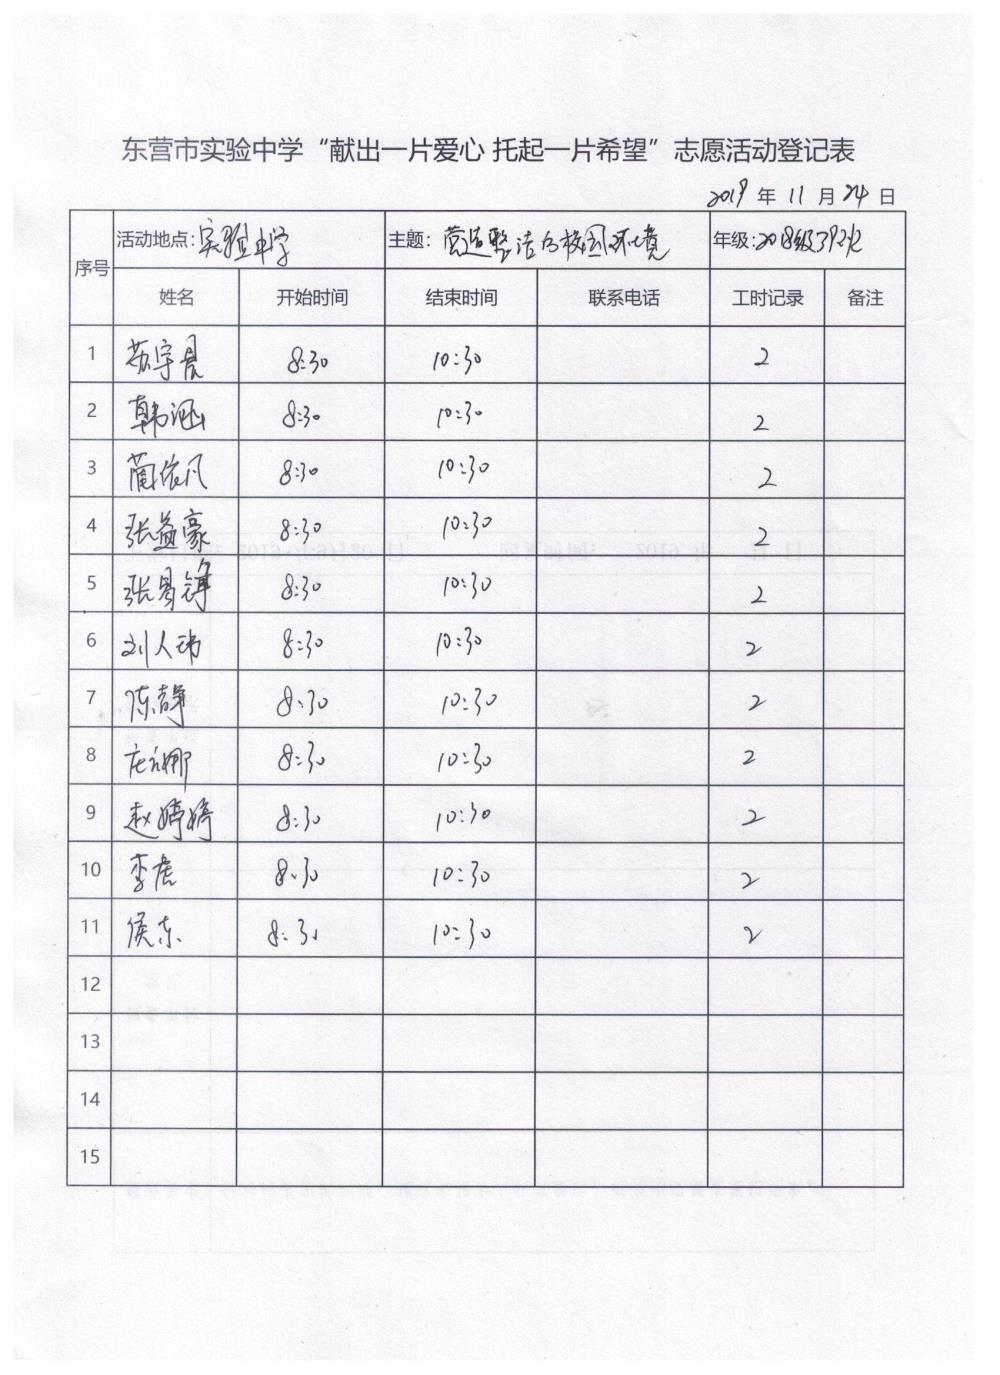 东营市实验中学“献出一片爱心 托起一片希望”志愿活动登记表
2019 年 11 月 24 日
序号 活动地点:实验中学 主题: 营造整洁的校园环境 年级:2018级
姓名 开始时间 结束时间 联系电话 工时记录 备注
1 苏宇晨 8:30 10:30 2
2 韩涵 8:30 10:30 2
3 蔺依凡 8:30 10:30 2
4 张益豪 8:30 10:30 2
5 张易锋 8:30 10:30 2
6 刘人玮 8:30 10:30 2
7 陈静 8:30 10:30 2
8 8:30 10:30 2
9 赵婷婷 8:30 10:30 2
10 李虎 8:30 10:30 2
11 侯东 8:30 10:30 2
12
13
14
15